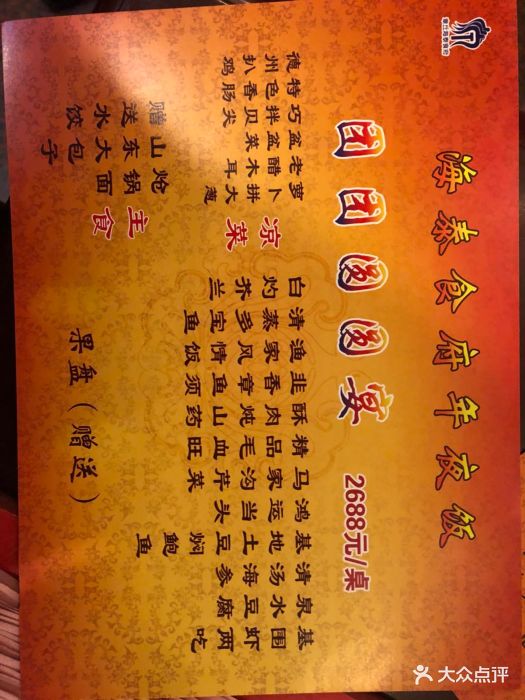 海泰食府年夜饭
团团圆圆宴
2688元/桌
凉菜
德州扒鸡
特色香肠
巧拌贝尖
盆盆菜
老醋木耳
萝卜拼大葱
白灼芥兰
清蒸多宝鱼
渔家风情饭
韭香章鱼须
酥肉炖山药
精品毛血旺
马家沟芹菜
鸿运当头
基地土豆焖鲍鱼
清汤海参
泉水豆腐
基围虾两吃
主食
赠送水饺
山东大包子
炝锅面
果盘（赠送）
大众点评